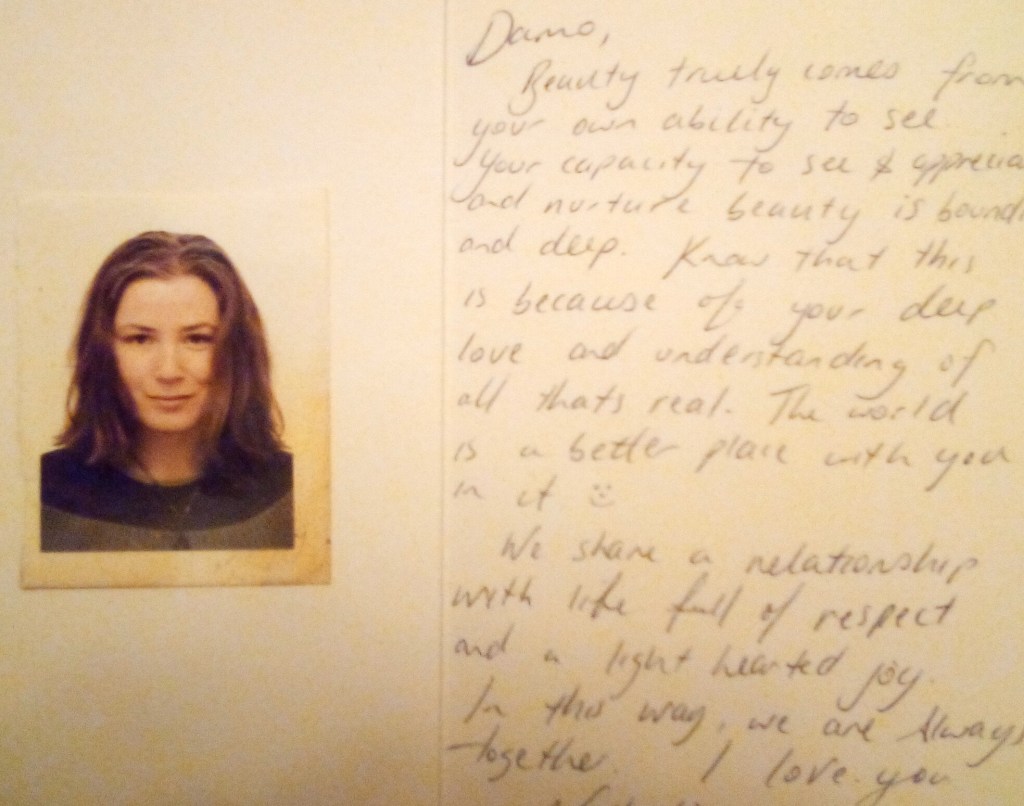 Damo,
Beauty truely comes from
your own ability to see.
Your capacity to see & apprecia
and nurture beauty is bound
and deep. Know that this
is because of your deep
love and understanding of
all thats real. The world
is a better place with you
in it :)
We share a relationship
with life full of respect
and a light hearted joy.
In this way, we are Always
together. I love you